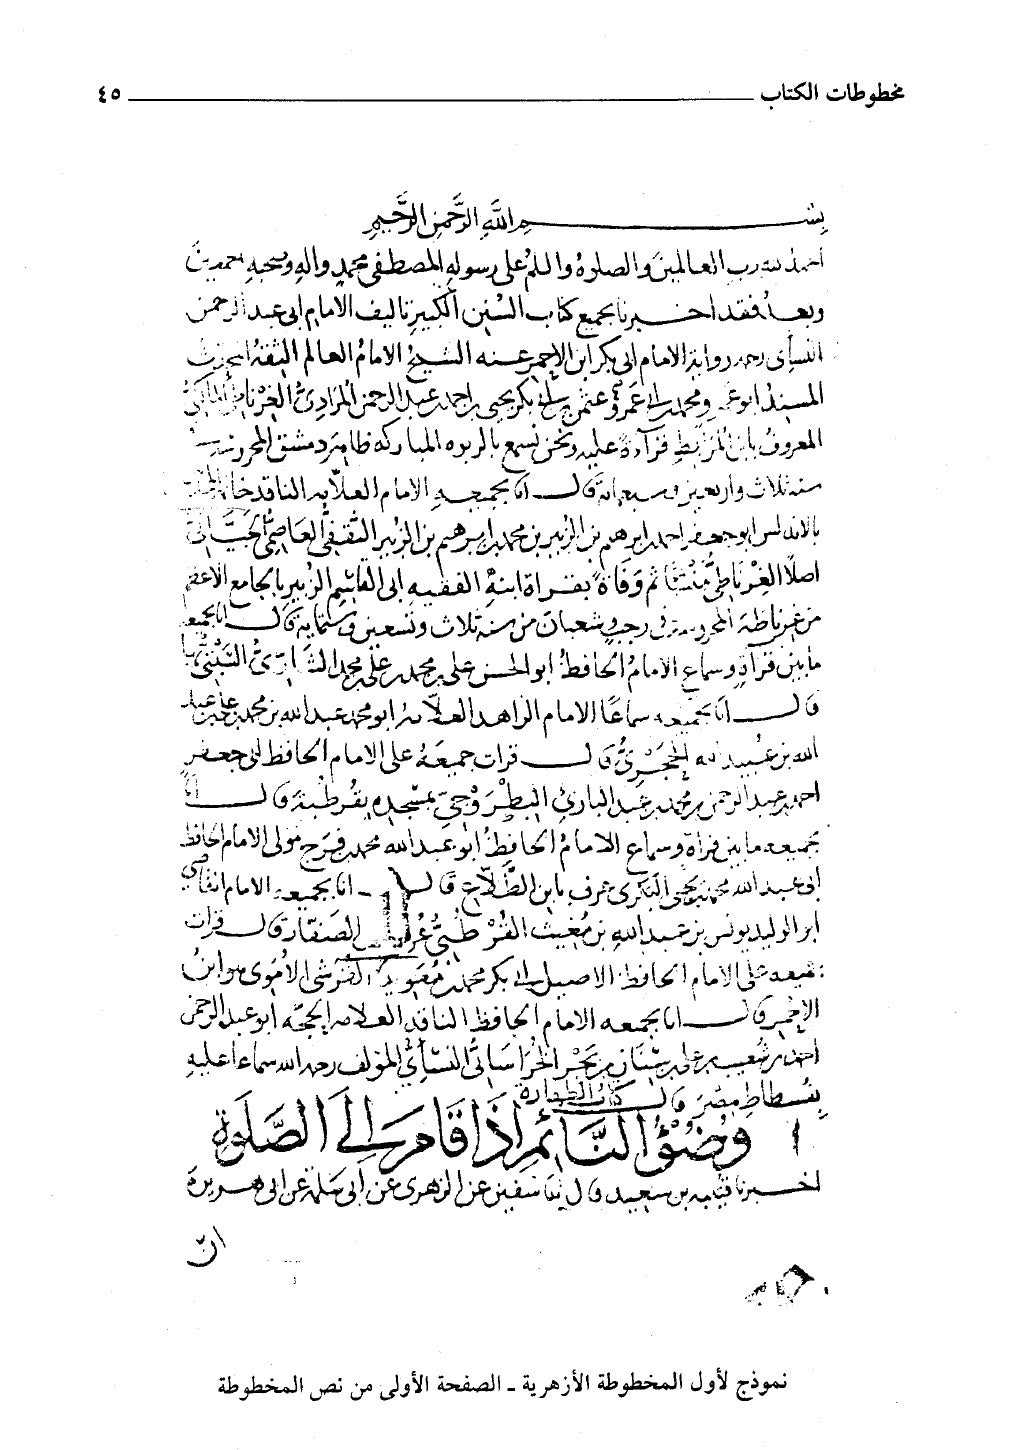 مخطوطات الكتاب ٤٥
بسم الله الرحمن الرحيم
الحمد لله رب العالمين والصلوة والسلم على رسوله المصطفى محمد واله وصحبه اجمعين
وبعد فقد اخبرنا بجميع كتاب السنن الكبير تاليف الامام ابى عبد الرحمن
النسأى رحمه رواية الامام ابى بكر ابن الاحمر عنه الشيخ الامام العالم الثقة المحدث
المسند ابو عمرو محمد بن ابى عمرو عثمن بن ابى بكر يحيى بن احمد بن عبد الرحمن المرادى الغرناطى المالكى
المعروف بابن المرابط قرآءة عليه ونحن نسمع بالربوه المباركه ظاهر دمشق المحروسة
سنة ثلاث واربعين وسبعمائة قال انا بجميعه الامام العلامة الناقد خاتمة
بالاندلس ابو جعفر احمد بن ابرهيم بن الزبير بن محمد بن ابرهيم بن الزبير الثقفى العاصمى الجيانى
اصلا الغرناطى منشئا ثم وفاة بقراة ابنه الفقيه ابى القاسم الزبير بالجامع الاعظم
من غرناطة المحروسة فى رجب وشعبان من سنة ثلاث وتسعين وستماية قال انا بجميعه
ما بين قرآة وسماع الامام الحافظ ابو الحسن على بن محمد بن على بن محمد الشارى
قال انا بجميعه سماعا الامام الزاهد العلامة ابو محمد عبد الله بن محمد بن على بن عبد
الله بن عبيد الله الحجرى قال قرات جميعه على الامام الحافظ ابى جعفر
احمد بن عبد الرحمن بن محمد بن عبد البارئ البطروجى بمسجده بقرطبة قال انا
بجميعه ما بين قراة وسماع الامام الحافظ ابو عبد الله محمد بن فرج مولى الامام الحافظ
ابى عبد الله محمد بن يحيى البكرى عرف بابن الطلاع قال انا بجميعه الامام القاضى
ابو الوليد يونس بن عبد الله بن مغيث القرطبى عرف بابن الصفار قال قرات
جميعه على الامام الحافظ الاصيل ابى بكر محمد بن معوية القرشى الاموى هو ابن
الاحمر قال انا بجميعه الامام الحافظ الناقد العلامه الحجة ابو عبد الرحمن
احمد بن شعيب بن على بن سنان بن بحر الخراسانى النسأى المؤلف رحمه الله سماعا عليه
بفسطاط مصر قال كتاب الطهارة
وضوء النائم اذا قام الى الصلوة
اخبرنا قتيبه بن سعيد قال ثنا سفين عن الزهرى عن ابى سلمة عن ابى هريرة
ان
نموذج لأول المخطوطة الأزهرية - الصفحة الأولى من نص المخطوطة